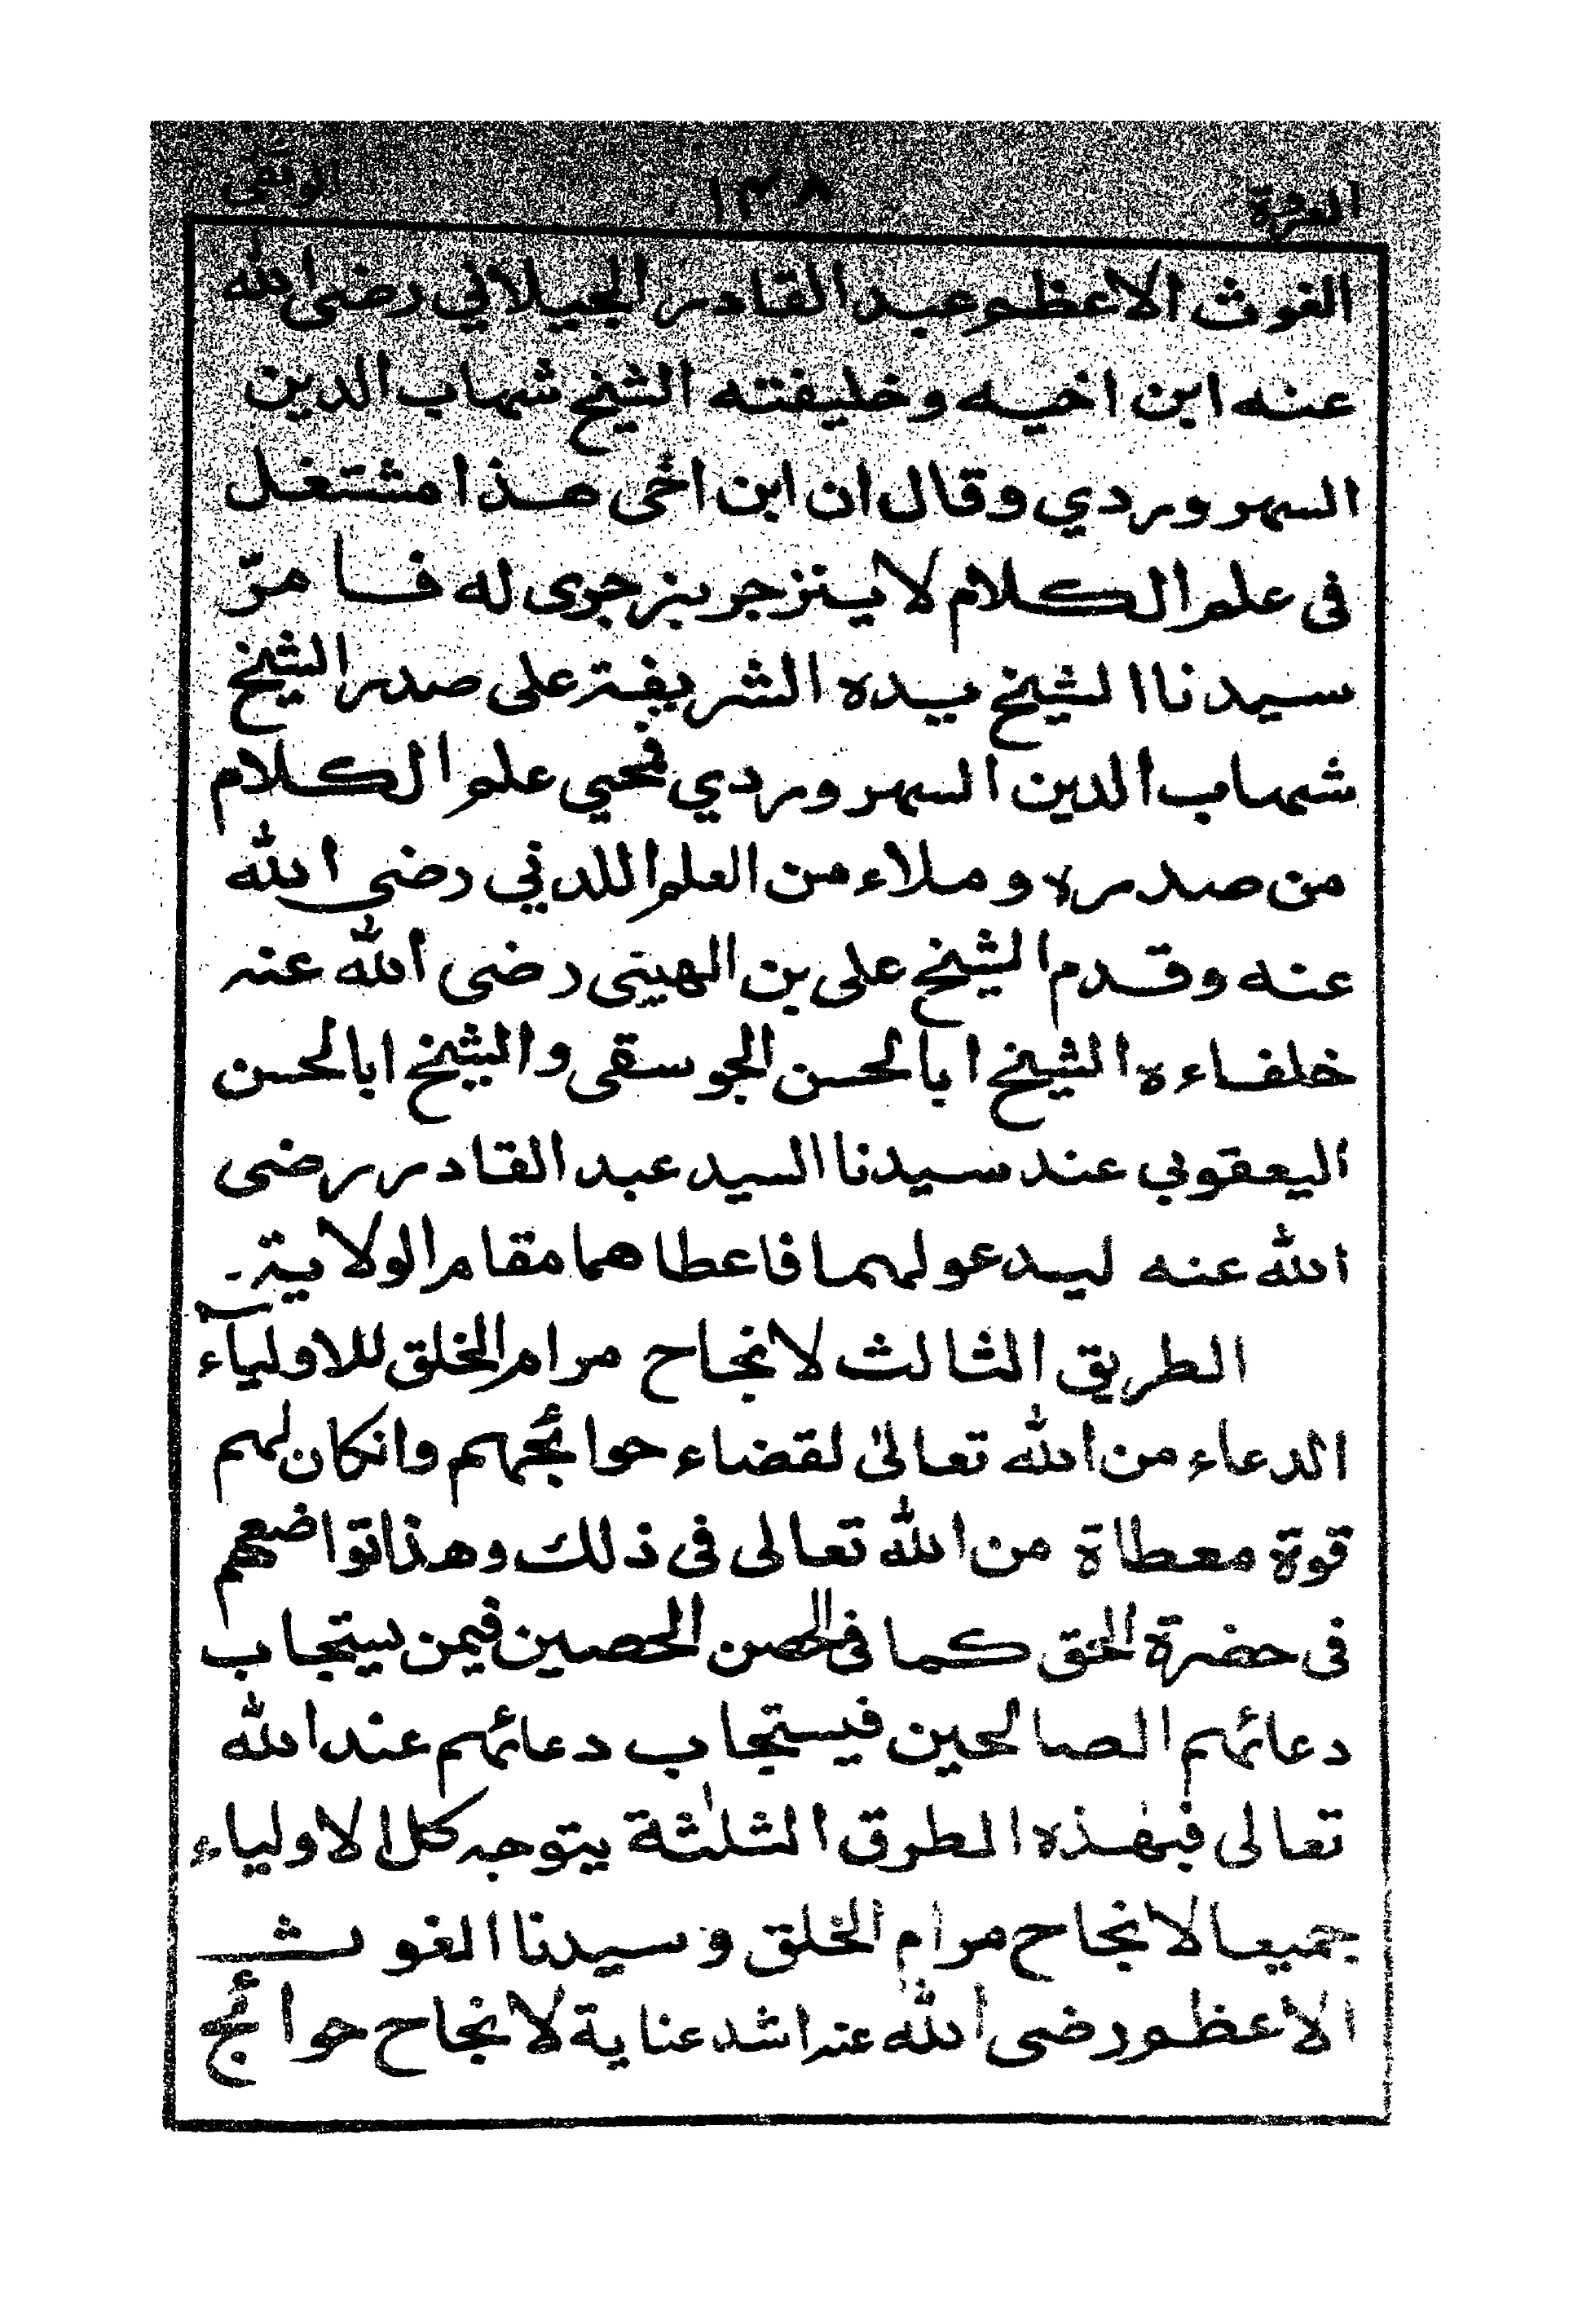 العروة ١٣٨ الوثقى
الغوث الاعظم عبد القادر الجيلاني رضى الله
عنه ابن اخيه وخليفته الشيخ شهاب الدين
السهروردي وقال ان ابن اخى هذا مشتغل
فى علم الكلام لا ينزجر بزجرى له فــا مرّ
سيدنا الشيخ بيده الشريفة على صدر الشيخ
شهاب الدين السهروردي فمحي علم الكلام
من صدره وملاء من العلم اللدني رضى الله
عنه وقدم الشيخ على بن الهيتى رضى الله عنه
خلفاءه الشيخ ابا الحسن الجوسقى والشيخ ابا الحسن
اليعقوبي عند سيدنا السيد عبد القادر رضى
الله عنه ليدعو لهما فاعطاهما مقام الولاية ـ
الطريق الثالث لانجاح مرام الخلق للاولياء
الدعاء من الله تعالىٰ لقضاء حوائجهم وانكان لهم
قوة معطاة من الله تعالى فى ذلك وهذا تواضعهم
فى حضرة الحق كما فى الحصن الحصين فيمن يستجاب
دعائهم الصالحين فيستجاب دعائهم عند الله
تعالى فبهذه الطرق الثلٰثة يتوجه كل الاولياء
جميعا لانجاح مرام الخلق وسيدنا الغوث
الاعظم رضى الله عنه اشد عناية لانجاح حوائج